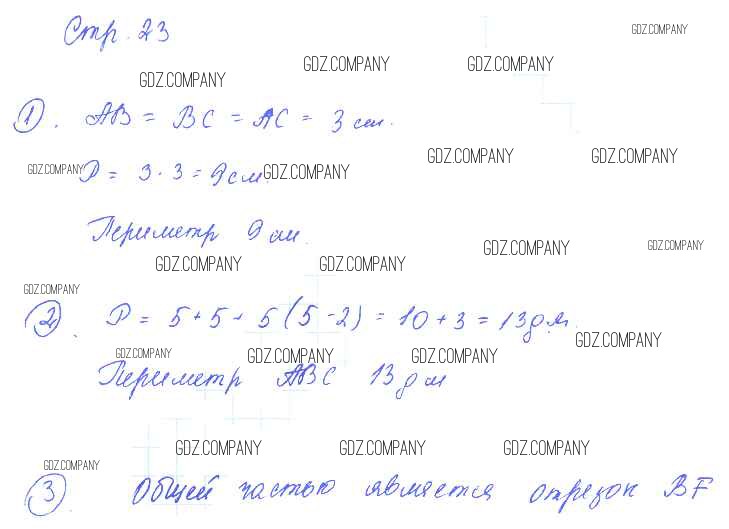 Стр. 23
GDZ.COMPANY
GDZ.COMPANY GDZ.COMPANY
GDZ.COMPANY
1. AB = BC = AC = 3 см.
GDZ.COMPANY GDZ.COMPANY
GDZ.COMPANY P = 3 · 3 = 9 см. GDZ.COMPANY
Периметр 9 см.
GDZ.COMPANY GDZ.COMPANY
GDZ.COMPANY GDZ.COMPANY
GDZ.COMPANY
2. P = 5 + 5 + 5 (5 - 2) = 10 + 3 = 13 дм.
GDZ.COMPANY
GDZ.COMPANY GDZ.COMPANY GDZ.COMPANY
Периметр ABC 13 дм
GDZ.COMPANY GDZ.COMPANY GDZ.COMPANY
GDZ.COMPANY
3. Общей частью является отрезок BF